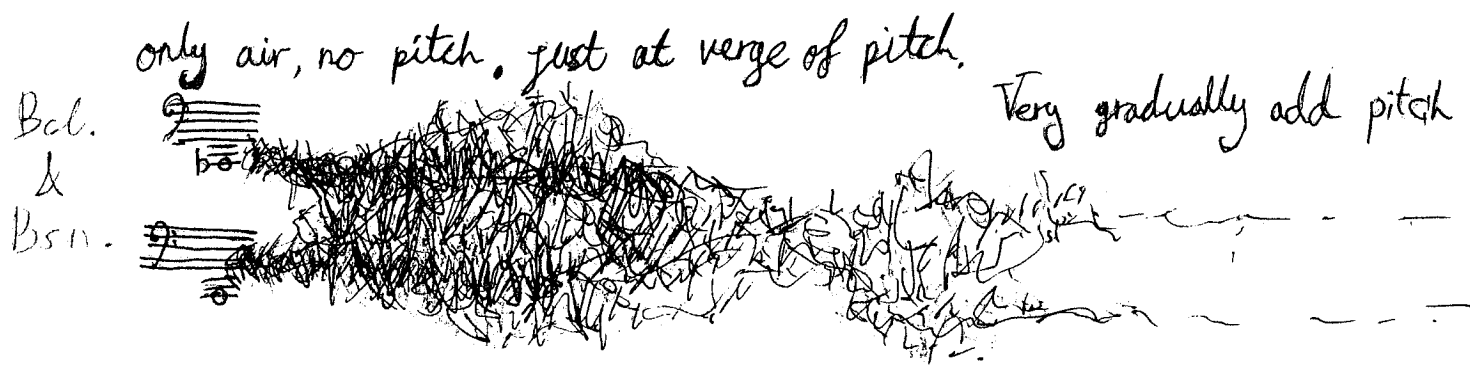 only air, no pitch. just at verge of pitch.
Very gradually add pitch
Bcl.
&
Bsn.